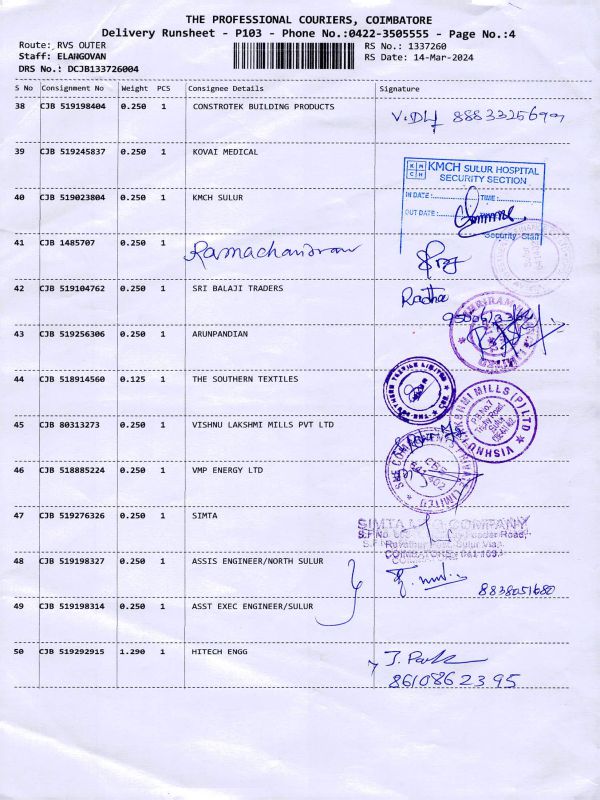 THE PROFESSIONAL COURIERS, COIMBATORE
Delivery Runsheet - P103 - Phone No.:0422-3505555 - Page No.:4
Route: RVS OUTER
RS No.: 1337260
Staff: ELANGOVAN
RS Date: 14-Mar-2024
DRS No.: DCJB133726004
S No Consignment No Weight PCS Consignee Details Signature
38 CJB 519198404 0.250 1 CONSTROTEK BUILDING PRODUCTS
39 CJB 519245837 0.250 1 KOVAI MEDICAL
KMCH SULUR HOSPITAL
SECURITY SECTION
40 CJB 519023804 0.250 1 KMCH SULUR
IN DATE: TIME
OUT DATE:
Security Staff
41 CJB 1485707 0.250 1 Ramachandran
42 CJB 519104762 0.250 1 SRI BALAJI TRADERS
Radha
43 CJB 519256306 0.250 1 ARUNPANDIAN
44 CJB 518914560 0.125 1 THE SOUTHERN TEXTILES
45 CJB 80313273 0.250 1 VISHNU LAKSHMI MILLS PVT LTD
46 CJB 518885224 0.250 1 VMP ENERGY LTD
47 CJB 519276326 0.250 1 SIMTA
48 CJB 519198327 0.250 1 ASSIS ENGINEER/NORTH SULUR
8838051680
49 CJB 519198314 0.250 1 ASST EXEC ENGINEER/SULUR
50 CJB 519292915 1.290 1 HITECH ENGG
8610862395